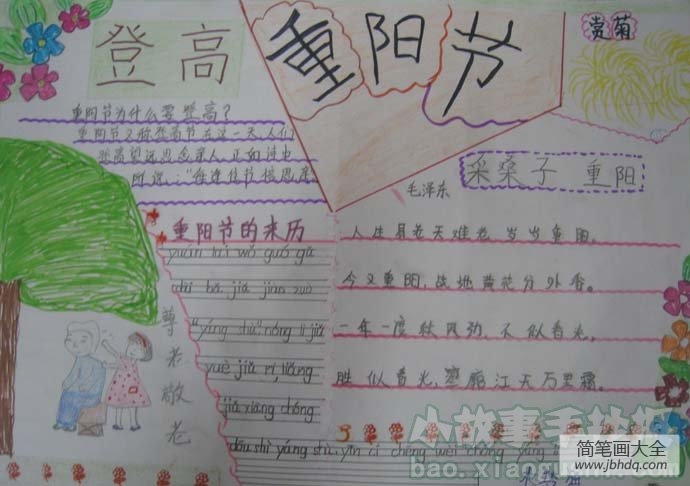 登高
重阳节
赏菊
重阳节为什么要登高？
重阳节又称登高节在这一天人们
登高望远思念亲人正如诗中
所说："每逢佳节倍思亲
采桑子 重阳
毛泽东
人生易老天难老，岁岁重阳。
今又重阳，战地黄花分外香。
一年一度秋风劲，不似春光，
胜似春光，寥廓江天万里霜。
重阳节的来历
yuán lái wǒ guó gǔ
"yáng shù" nóng lì jiǔ
yuè jiǔ rì, liǎng
jiǔ xiāng chóng
dōu shì yáng shù, yīn cǐ chēng wèi chóng yáng
尊老敬老
小故事手抄报
bao.xiaogushi.com
简笔画大全
www.jbhdq.com